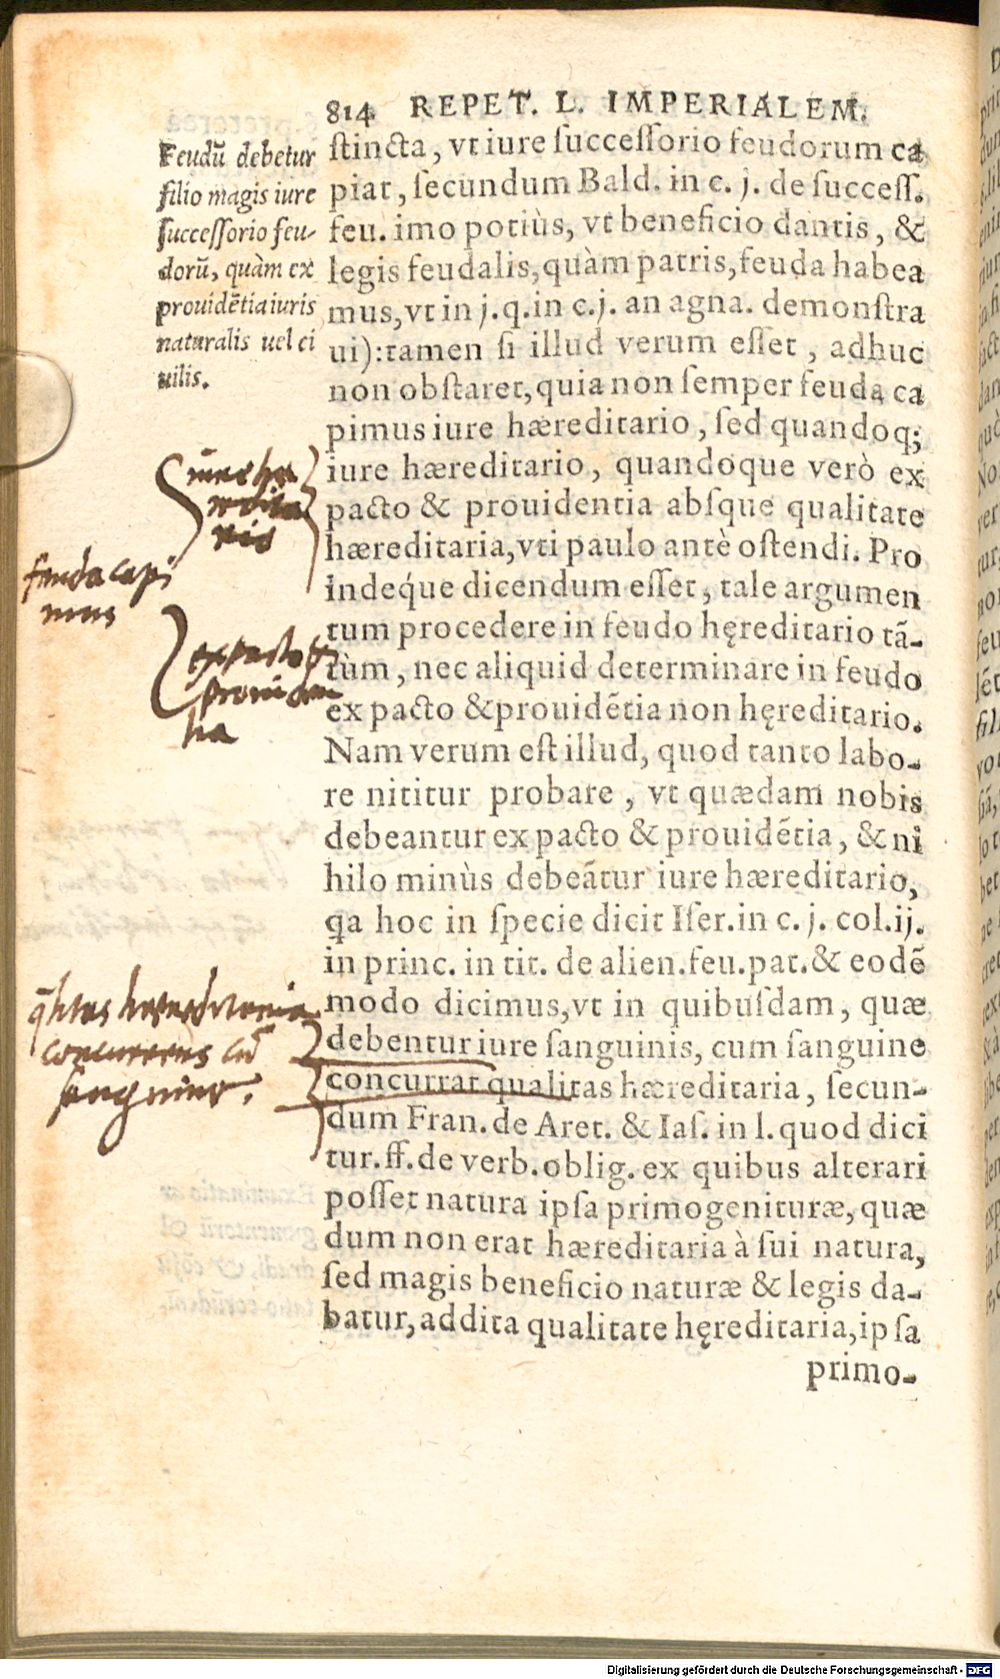 814 REPET. L. IMPERIALEM.
Feudū debetur
filio magis iure
ſucceſſorio feu-
dorū, quàm ex
prouidētia iuris
naturalis uel ci
uilis.
ſtincta, vt iure ſucceſſorio feudorum ca
piat, ſecundum Bald. in c. j. de ſucceſſ.
feu. imo potiùs, vt beneficio dantis, &
legis feudalis, quàm patris, feuda habea
mus, vt in j. q. in c. j. an agna. demonſtra
ui): tamen ſi illud verum eſſet, adhuc
non obſtaret, quia non ſemper feuda ca
pimus iure hæreditario, ſed quandoq;
iure hæreditario, quandoque verò ex
pacto & prouidentia abſque qualitate
hæreditaria, vti paulo antè oſtendi. Pro
indeq́ue dicendum eſſet, tale argumen
tum procedere in feudo hęreditario tā-
tùm, nec aliquid determinare in feudo
ex pacto & prouidētia non hęreditario.
Nam verum eſt illud, quod tanto labo-
re nititur probare, vt quædam nobis
debeantur ex pacto & prouidētia, & ni
hilo minùs debeātur iure hæreditario,
qa hoc in ſpecie dicit Iſer. in c. j. col. ij.
in princ. in tit. de alien. feu. pat. & eodē
modo dicimus, vt in quibuſdam, quæ
debentur iure ſanguinis, cum ſanguine
concurrat qualitas hæreditaria, ſecun-
dum Fran. de Aret. & Iaſ. in l. quod dici
tur. ff. de verb. oblig. ex quibus alterari
poſſet natura ipſa primogenituræ, quæ
dum non erat hæreditaria à ſui natura,
ſed magis beneficio naturæ & legis da-
batur, addita qualitate hęreditaria, ipſa
primo-
iure hæ
redita
rio
feuda capi
mus
ex pacto &
prouiden
tia
q̄litas hereditaria
concurrens cū
sanguine.
Digitalisierung gefördert durch die Deutsche Forschungsgemeinschaft - DFG